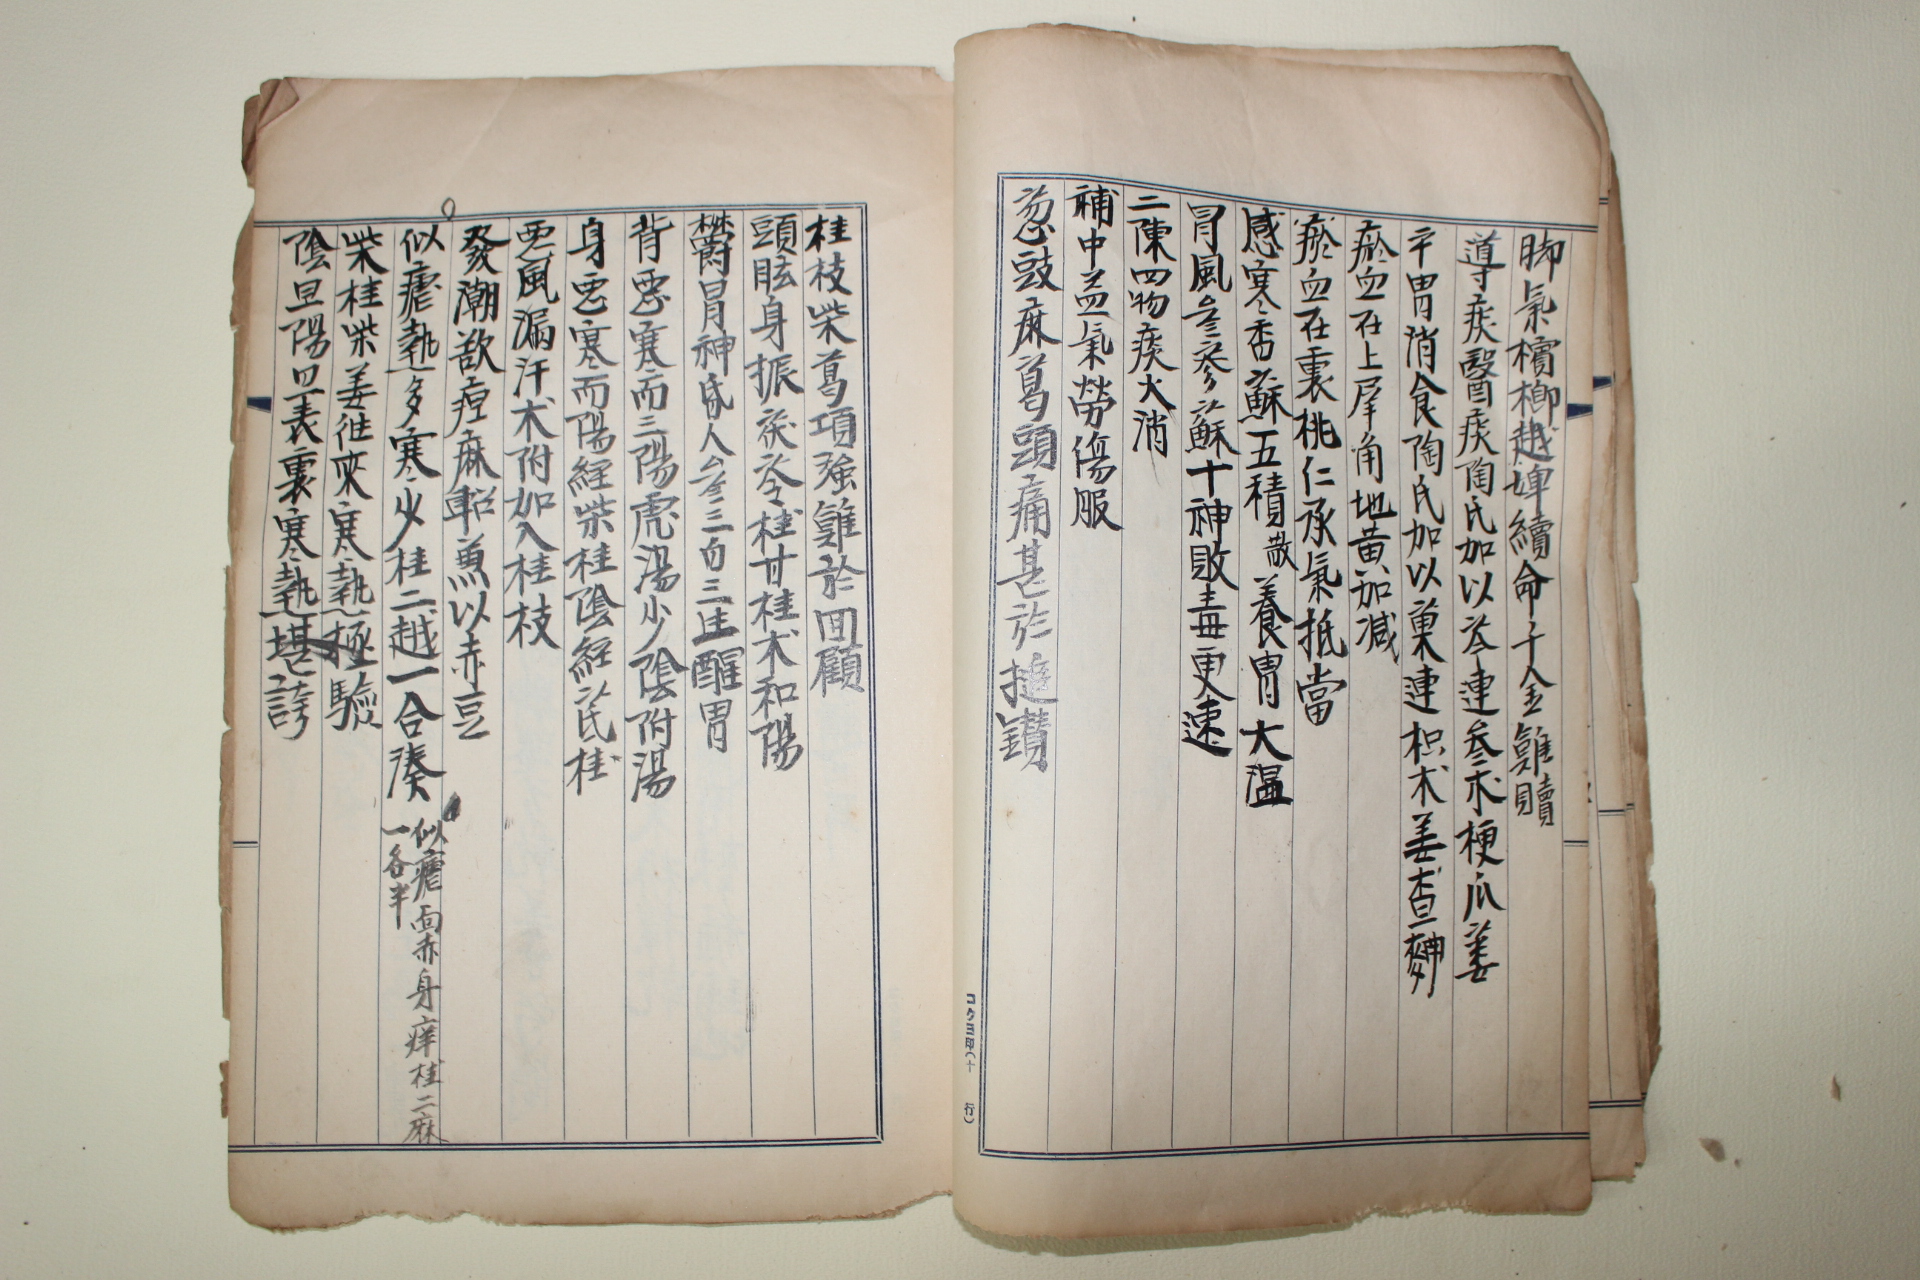 脚氣檳榔越婢續命千金難贖
導痰醫痰陶氏加以苓連參朮梗瓜姜
平胃消食陶氏加以菓連枳朮姜查麯
瘀血在上犀角地黃加减
瘀血在裏桃仁承氣抵當
感寒香蘇五積散養胃大温
冒風參蘇十神敗毒更速
二陳四物痰火消
補中益氣勞傷服
葱豉麻葛頭痛甚於搥鑽
コクヨ印(十行)
桂枝柴葛項強難於回顧
頭眩身振茯苓桂甘桂朮和陽
欝冒神昏人參三白三生醒胃
背惡寒而三陽虎湯少陰附湯
身惡寒而陽經柴桂陰經芪桂
惡風漏汗朮附加入桂枝
發潮欲痙麻軺兼以赤豆
似瘧熱多寒少桂二越一合湊 似瘧面赤身痒桂二麻一各半
柴桂柴姜往來寒熱極驗
陰旦陽旦表裏寒熱堪誇